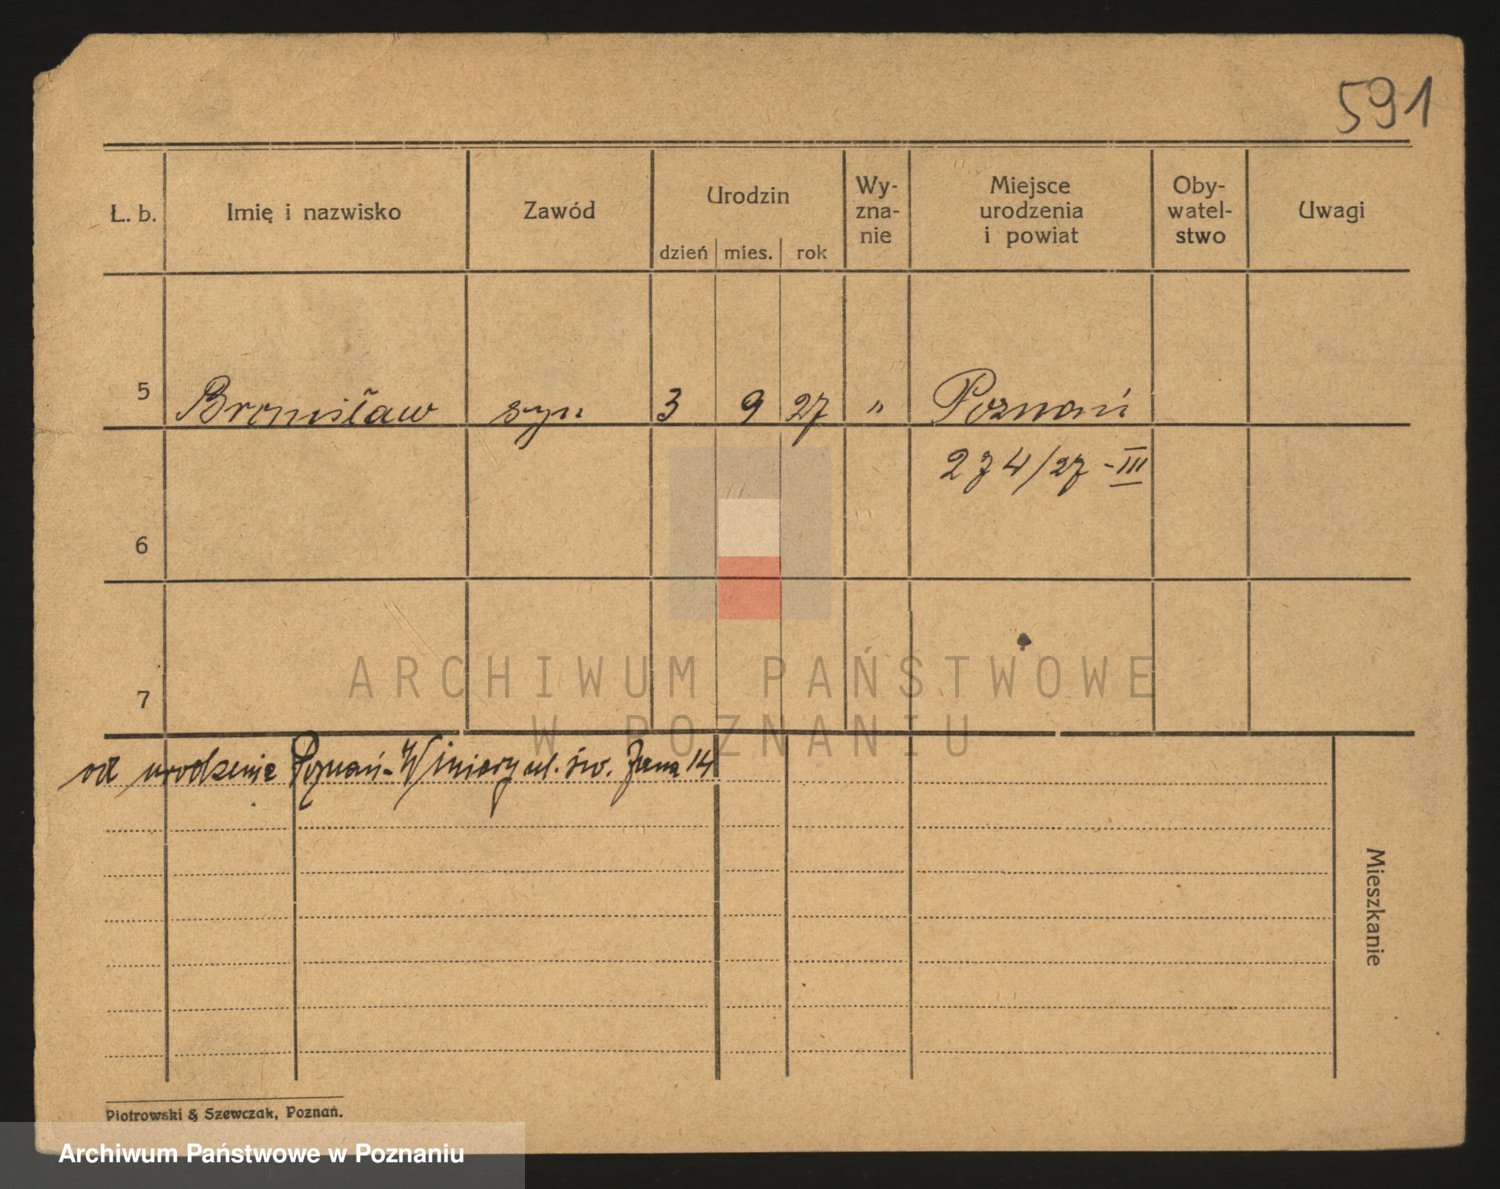 591
Ł. b.
Imię i nazwisko
Zawód
Urodzin
dzień mies. rok
Wy-
zna-
nie
Miejsce
urodzenia
i powiat
Oby-
watel-
stwo
Uwagi
5 Bronisław syn 3 9 27 " Poznań
274/27 - III
6
7
ARCHIWUM PAŃSTWOWE
W POZNANIU
od urodzenia Poznań-Winiary ul. św. Jana 14
Mieszkanie
Piotrowski & Szewczak, Poznań.
Archiwum Państwowe w Poznaniu